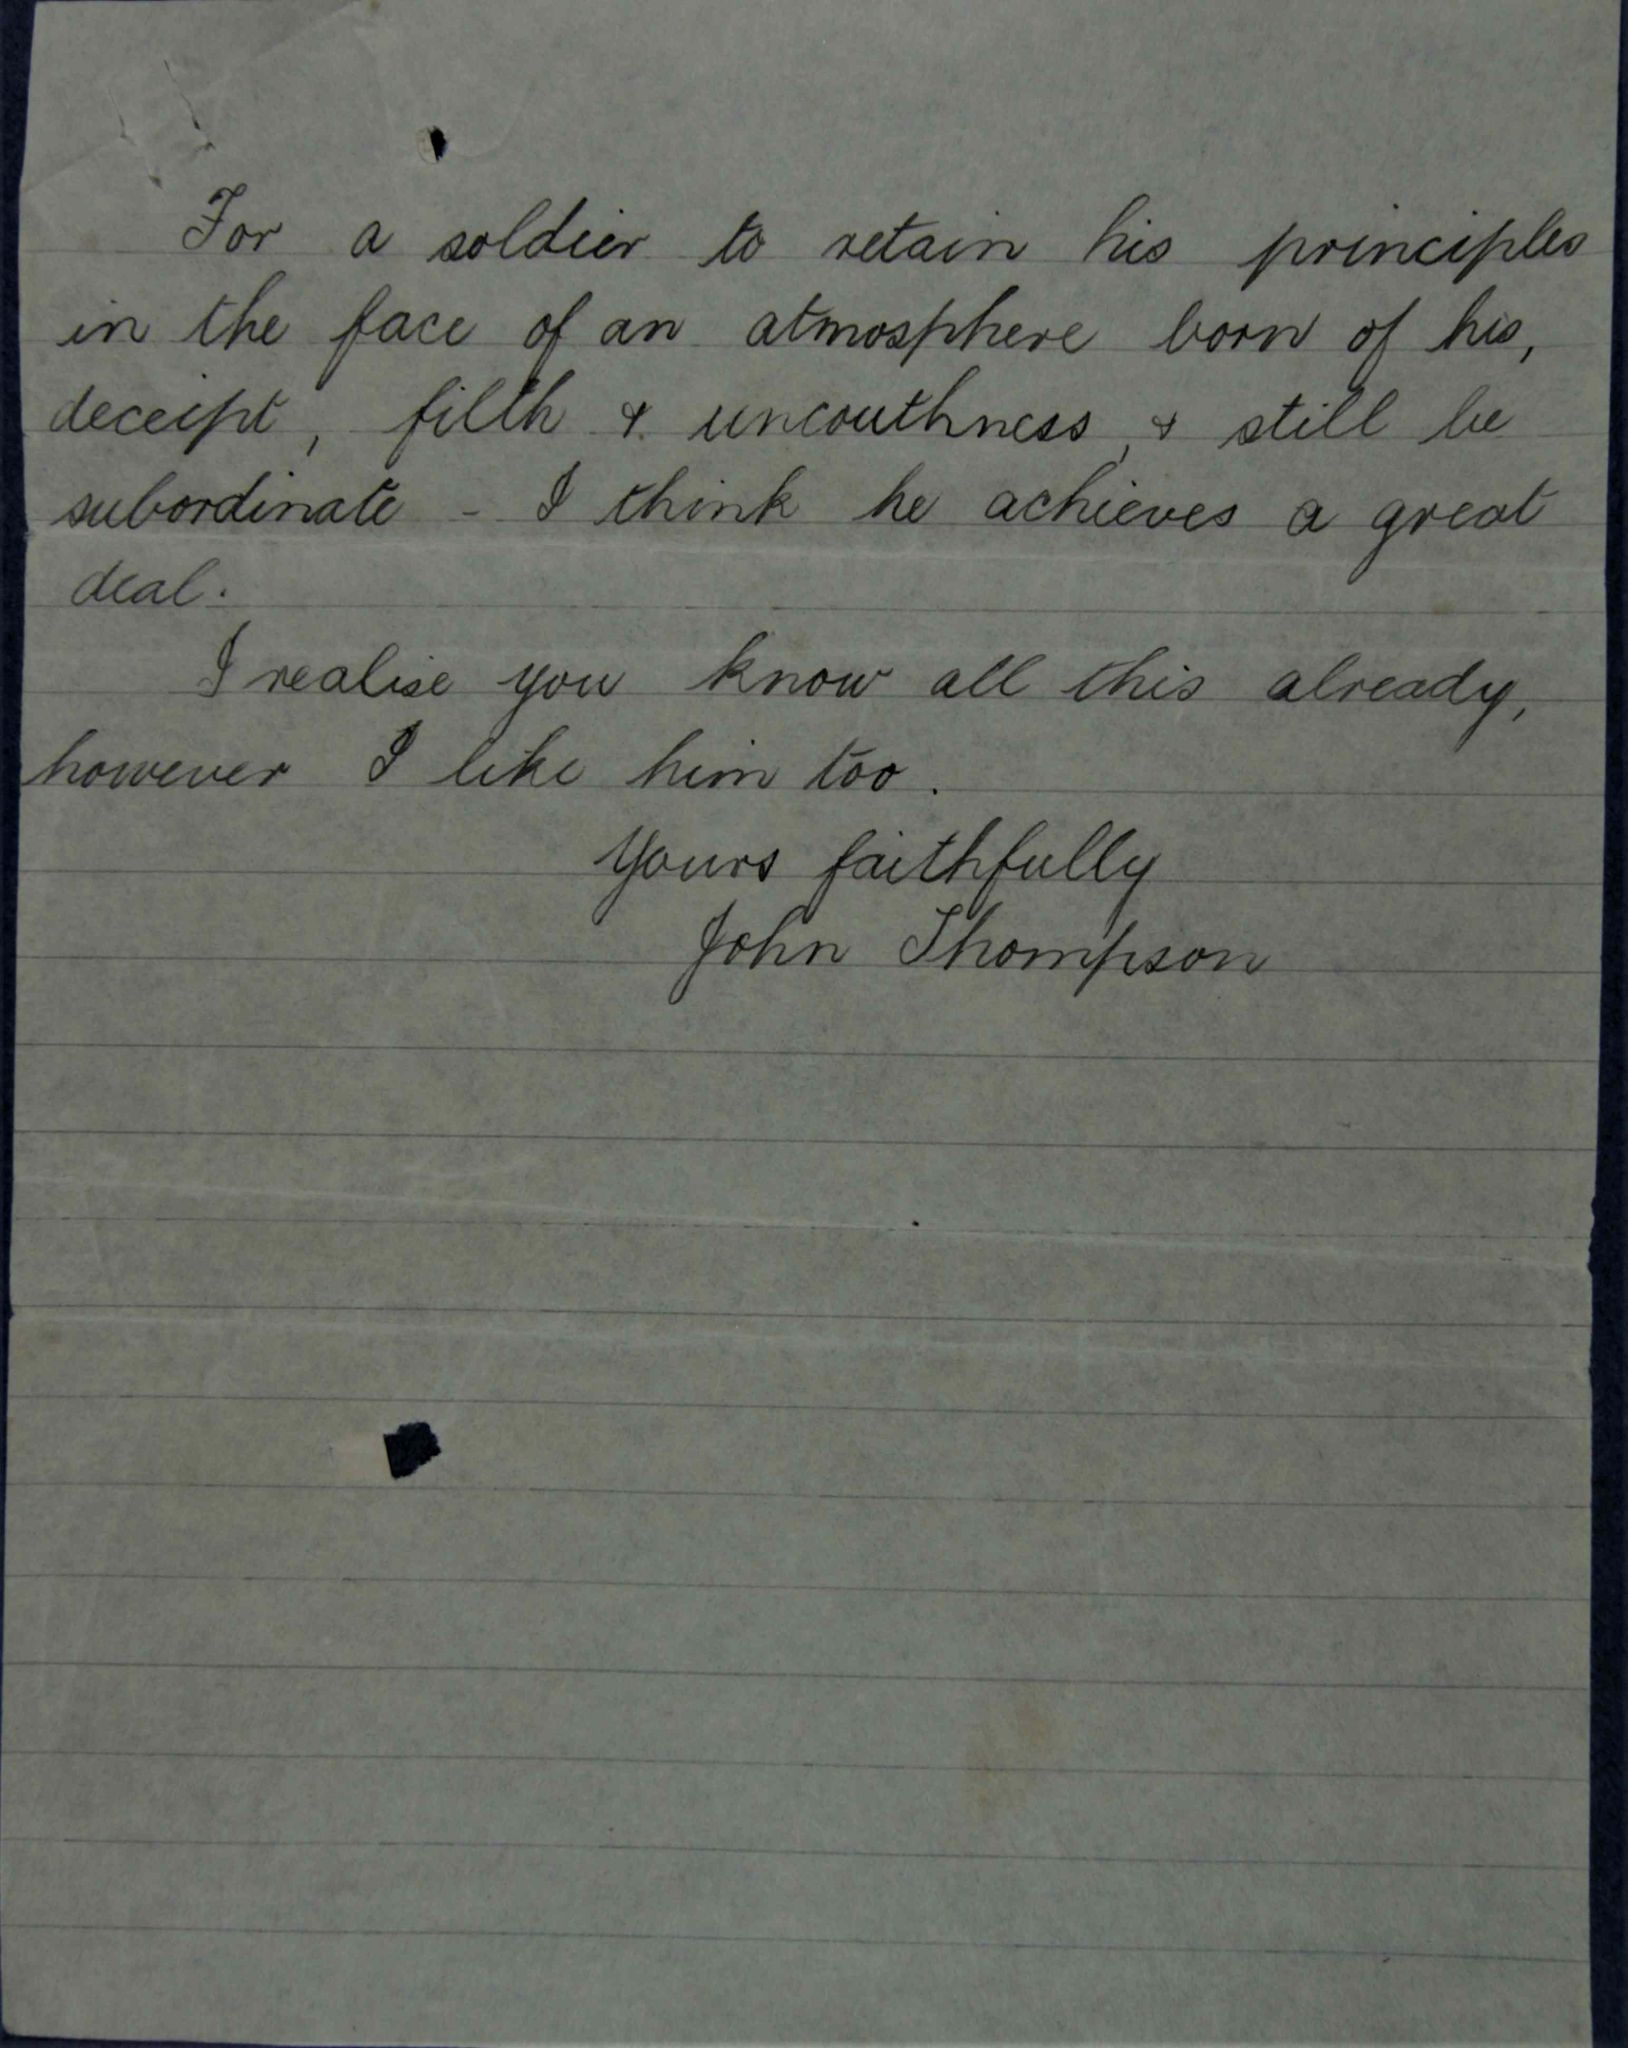 For a soldier to retain his principles
in the face of an atmosphere born of his,
deceipt, filth & uncouthness, & still be
subordinate - I think he achieves a great
deal.
I realise you know all this already,
however I like him too.
Yours faithfully
John Thompson